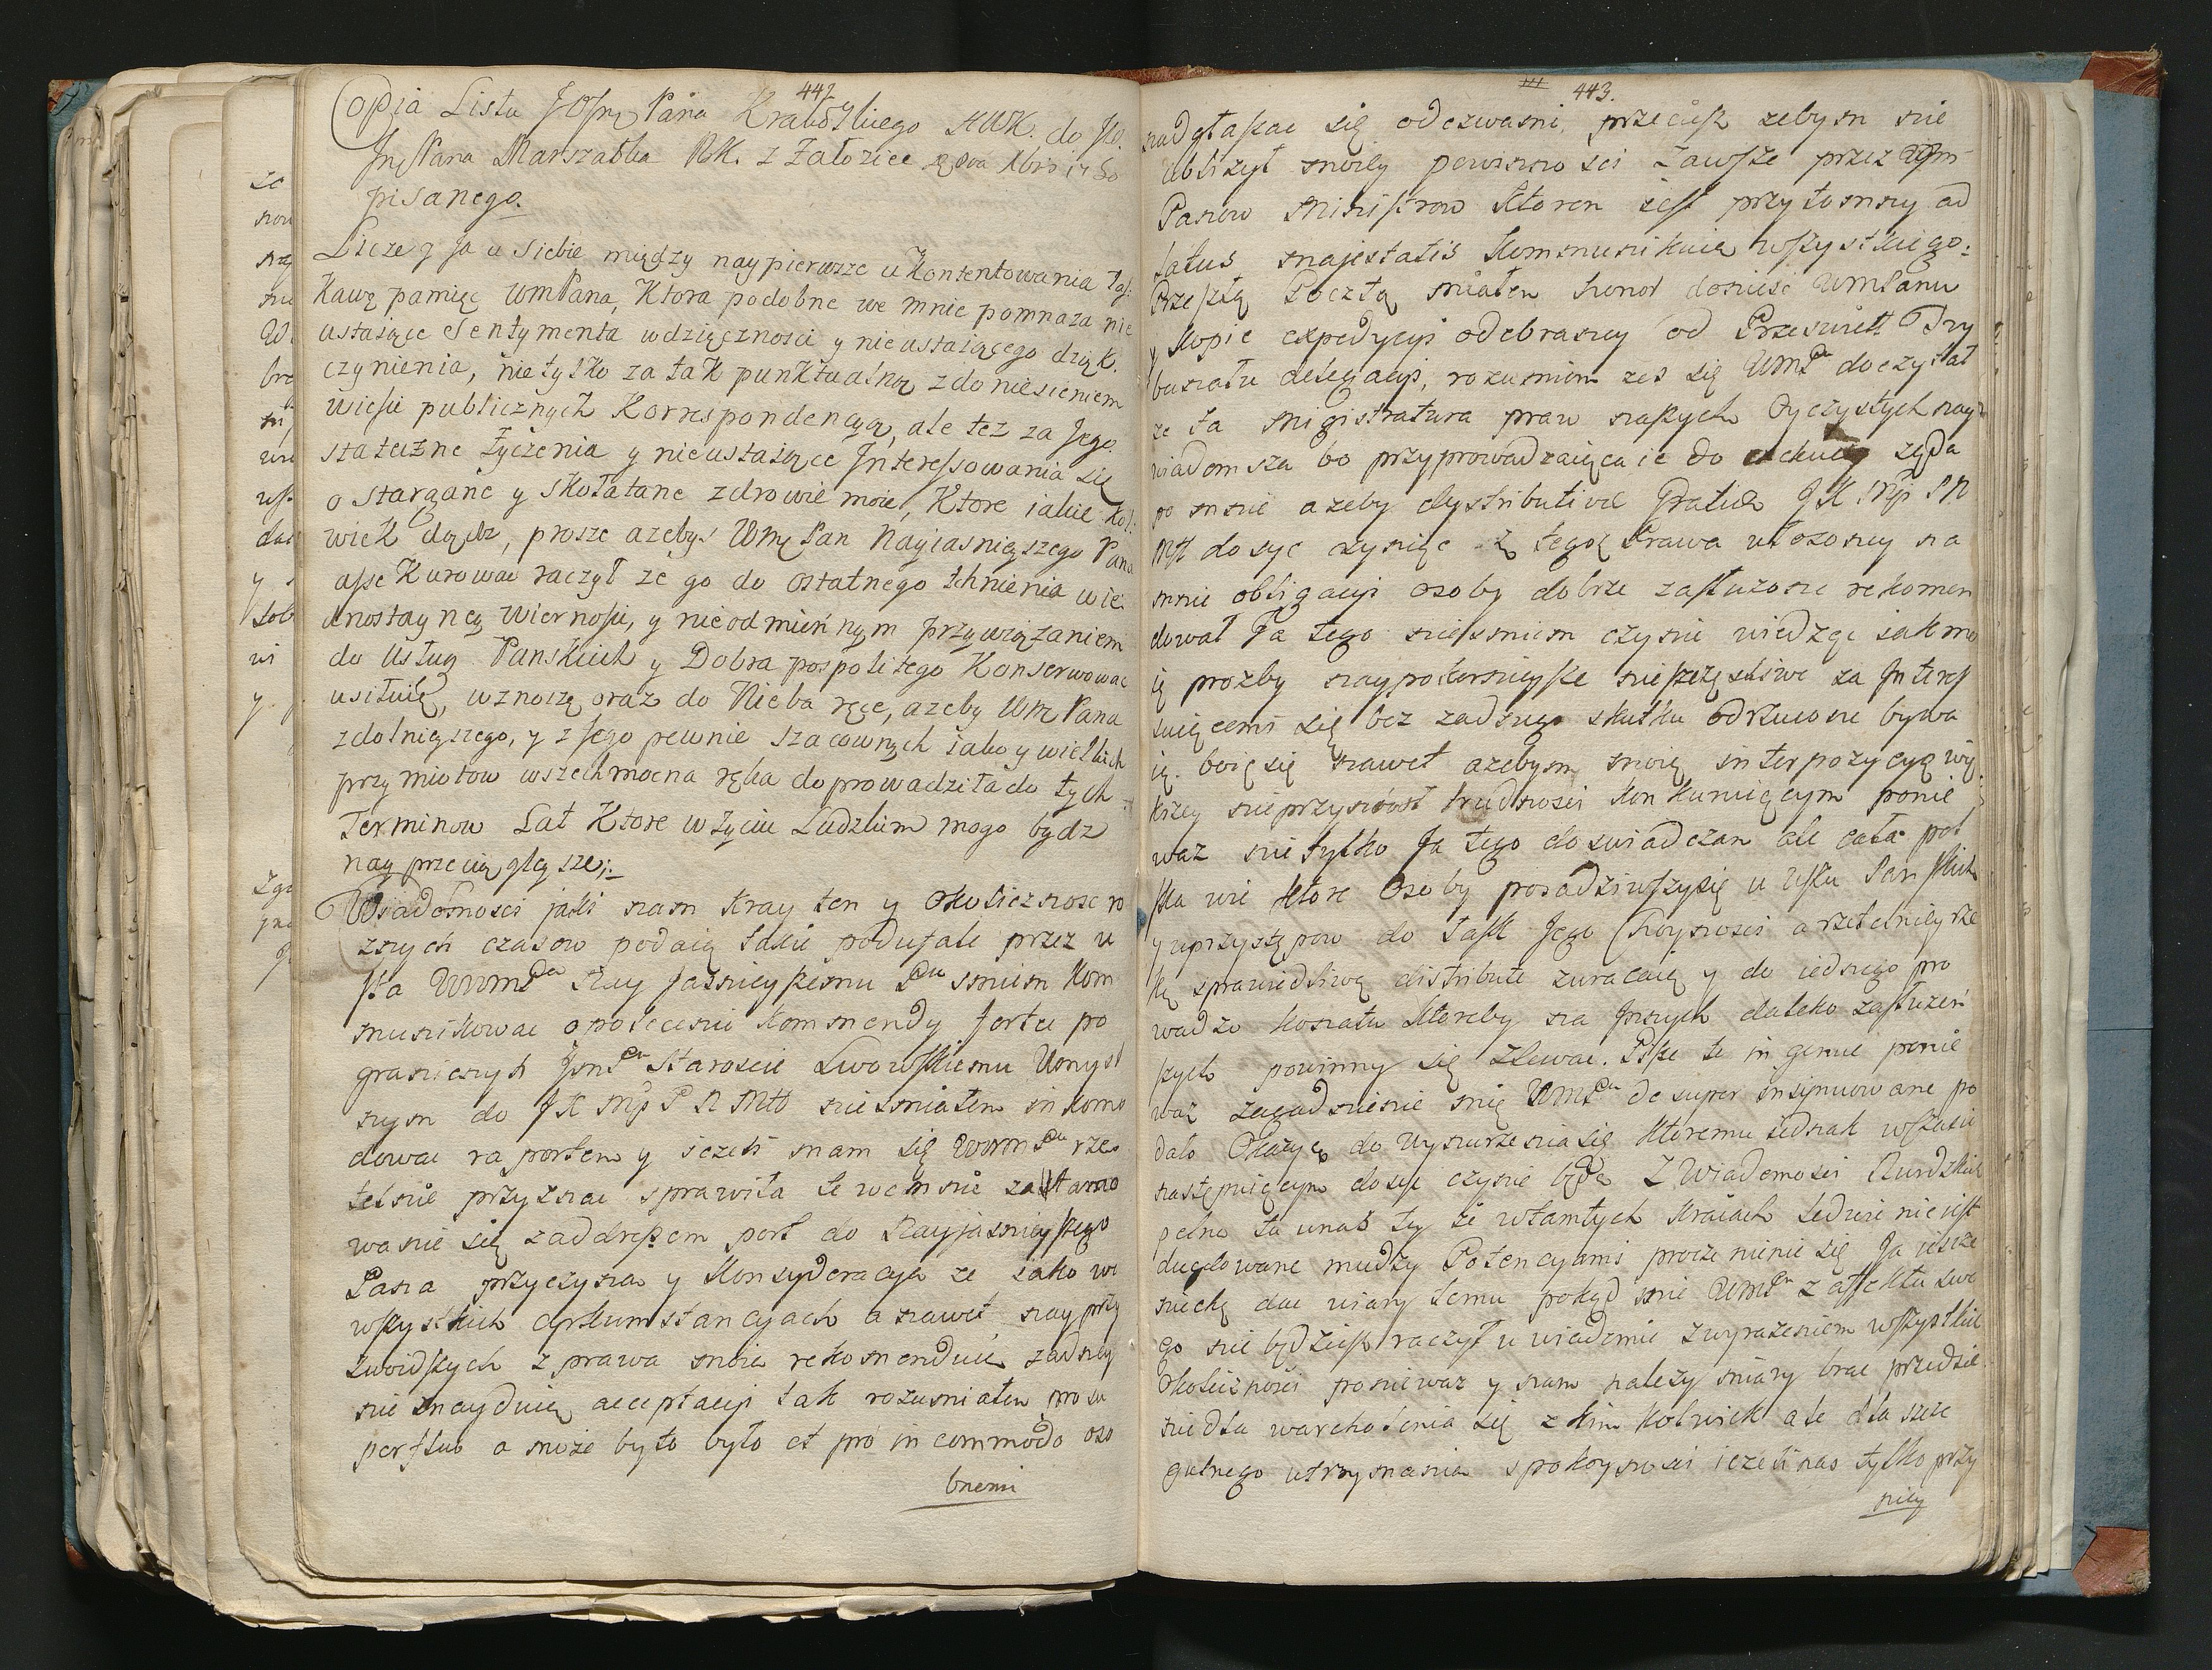 442
Copia Listu JOsn Pana Krakowskiego HWK. do JW.
Jms Pana Marszałka NK. z Załoziec
pisanego.
Liczę y ja u Siebie między naypierwsze ukontentowania łas:
kawą pamięć WmPana, Ktora podobne we mnie pomnaza nie
ustaiące Sentymenta wdzięcznosci y nieustaiącego dzięk.
czynienia, nie tylko za tak punktualną z doniesieniem
wiesci publicznych Korrespondencyą, ale tez za Jego
stateczne życzenia y nieustaiące Interessowania się
o stargane y skołatane zdrowie moie, Ktore iakie kol:
wiek bądz, prosze azebys Wmę Pan Nayiasnieyszego Pana
assekurowac raczył ze go do ostatnego tchnienia w ie:
dnostayney wiernosci, y nieodmiennym przywiązaniem
do Usług Panskich y Dobra pospolitego Konserwowac
usiłuię, wznoszę oraz do Nieba ręce, azeby Wm Pana
zdolnieyszego, y z Jego pewnie szacownych iako y wielkich
przymiotow wszechmocna ręka doprowadziła do tych
Terminow Lat Ktore w życiu Ludzkim mogo bydz
nayprzeciągleysze;
Wiadomosci jakie nam kray ten y okolicznosc ro
znych czasow podaią takie poufale przez u
sta WWmPa Nayjasnieyszemu Pu smiem kom
munikowac o poleceniu kommendy fortec po
granicznych JmP Staroscie Lwowskiemu Umysl
nym do JK Mci P N Mtt niesmiałem inkomo
dowac raportem y iezeli mam się WWmPu rze
telnie przyznac sprawiła te wemnie zastano
wanie się zaddressem port do Nayjasnieyszego
Pana przyczyna y Konsyderacya ze iako we
wszystkich cyrkumstancyach a nawet nayprzy
zwoitszych z prawa moie rekomendacie zadney
nie znayduią acceptacyi tak rozumiałem pro su
perfluo a moze by to było et pro incommodo oso
bnemi
443.
nadgłaszac się odezwami, przeciesz zebym nie
ubliżył moiey powinnosci zawsze przez
Panow Ministrow Ktoren iest przytomny ad
Latus majestatis Kommunikuie wszystkiego:
Przeszłą Pocztą miałem honor doniesc WmPanu
y kopie expedycyi odebraney od Przeswiet Try
bunału delegacyi, rozumiem zes się WmPu doczytał
ze ta Migistratura praw naszych Oyczystych nay
wiadomsza bo przyprowadzaiąca ie do exekucyi ząda
po mnie azeby distributivae Gratiae JK Mci P N
Mtt dosyc czyniąc z tegoz Prawa włozoney na
mnie obligacyi osoby dobrze zasłuzone rekomen
dował Ja tego niesmiem czynic wiedząc iak mo
ie prozby naypokornieysze nieszczęsliwe za Interes
suiącemi się bez zadnego skutku odrzucone bywa
ią. boię się nawet azebym moią interpozycyą wię
kszey nieprzyniosł trudnosci konkuruiącym ponie
waz nie tylko Ja tego doswiadczam ale cała pol
ska wie ktore Osoby posadziwszy się u Usłu Panskich
y uprzystępow do Łask Jego Hoynosci a rzetelniey rze
kę sprawiedliwą distribute zwracaią y do iednego pro
wadzo konału Ktoreby na Innych daleko zasłuzen
szych powinny się zlewac. Pisze te in genue ponie
waz zagadnienie mię WmPa de super insinuowane po
dało Okazyę do wynurzenia się Ktoremu iednak wszasie
następuiącym dosyc czynic będę Z Wiadomosci Rurdzkich
pełno tu unas ty ze w tamtych Kraiach ledwie nie iest
decydowane między Potencyami przeznienie się Ja ieszcze
niechcę dac wiary temu pokąd mie WmPan z affektu swe
go nie będziesz raczył uwiadomic z wyrazeniem wszystkich
Okolicznosci poniewaz y nam nalezy miary brac przedsie
nie dla warcholenia się z kim Kolwiek ale dla szcze
gulnego utrzymania spokoynosci iezeli nas tylko przy
niey